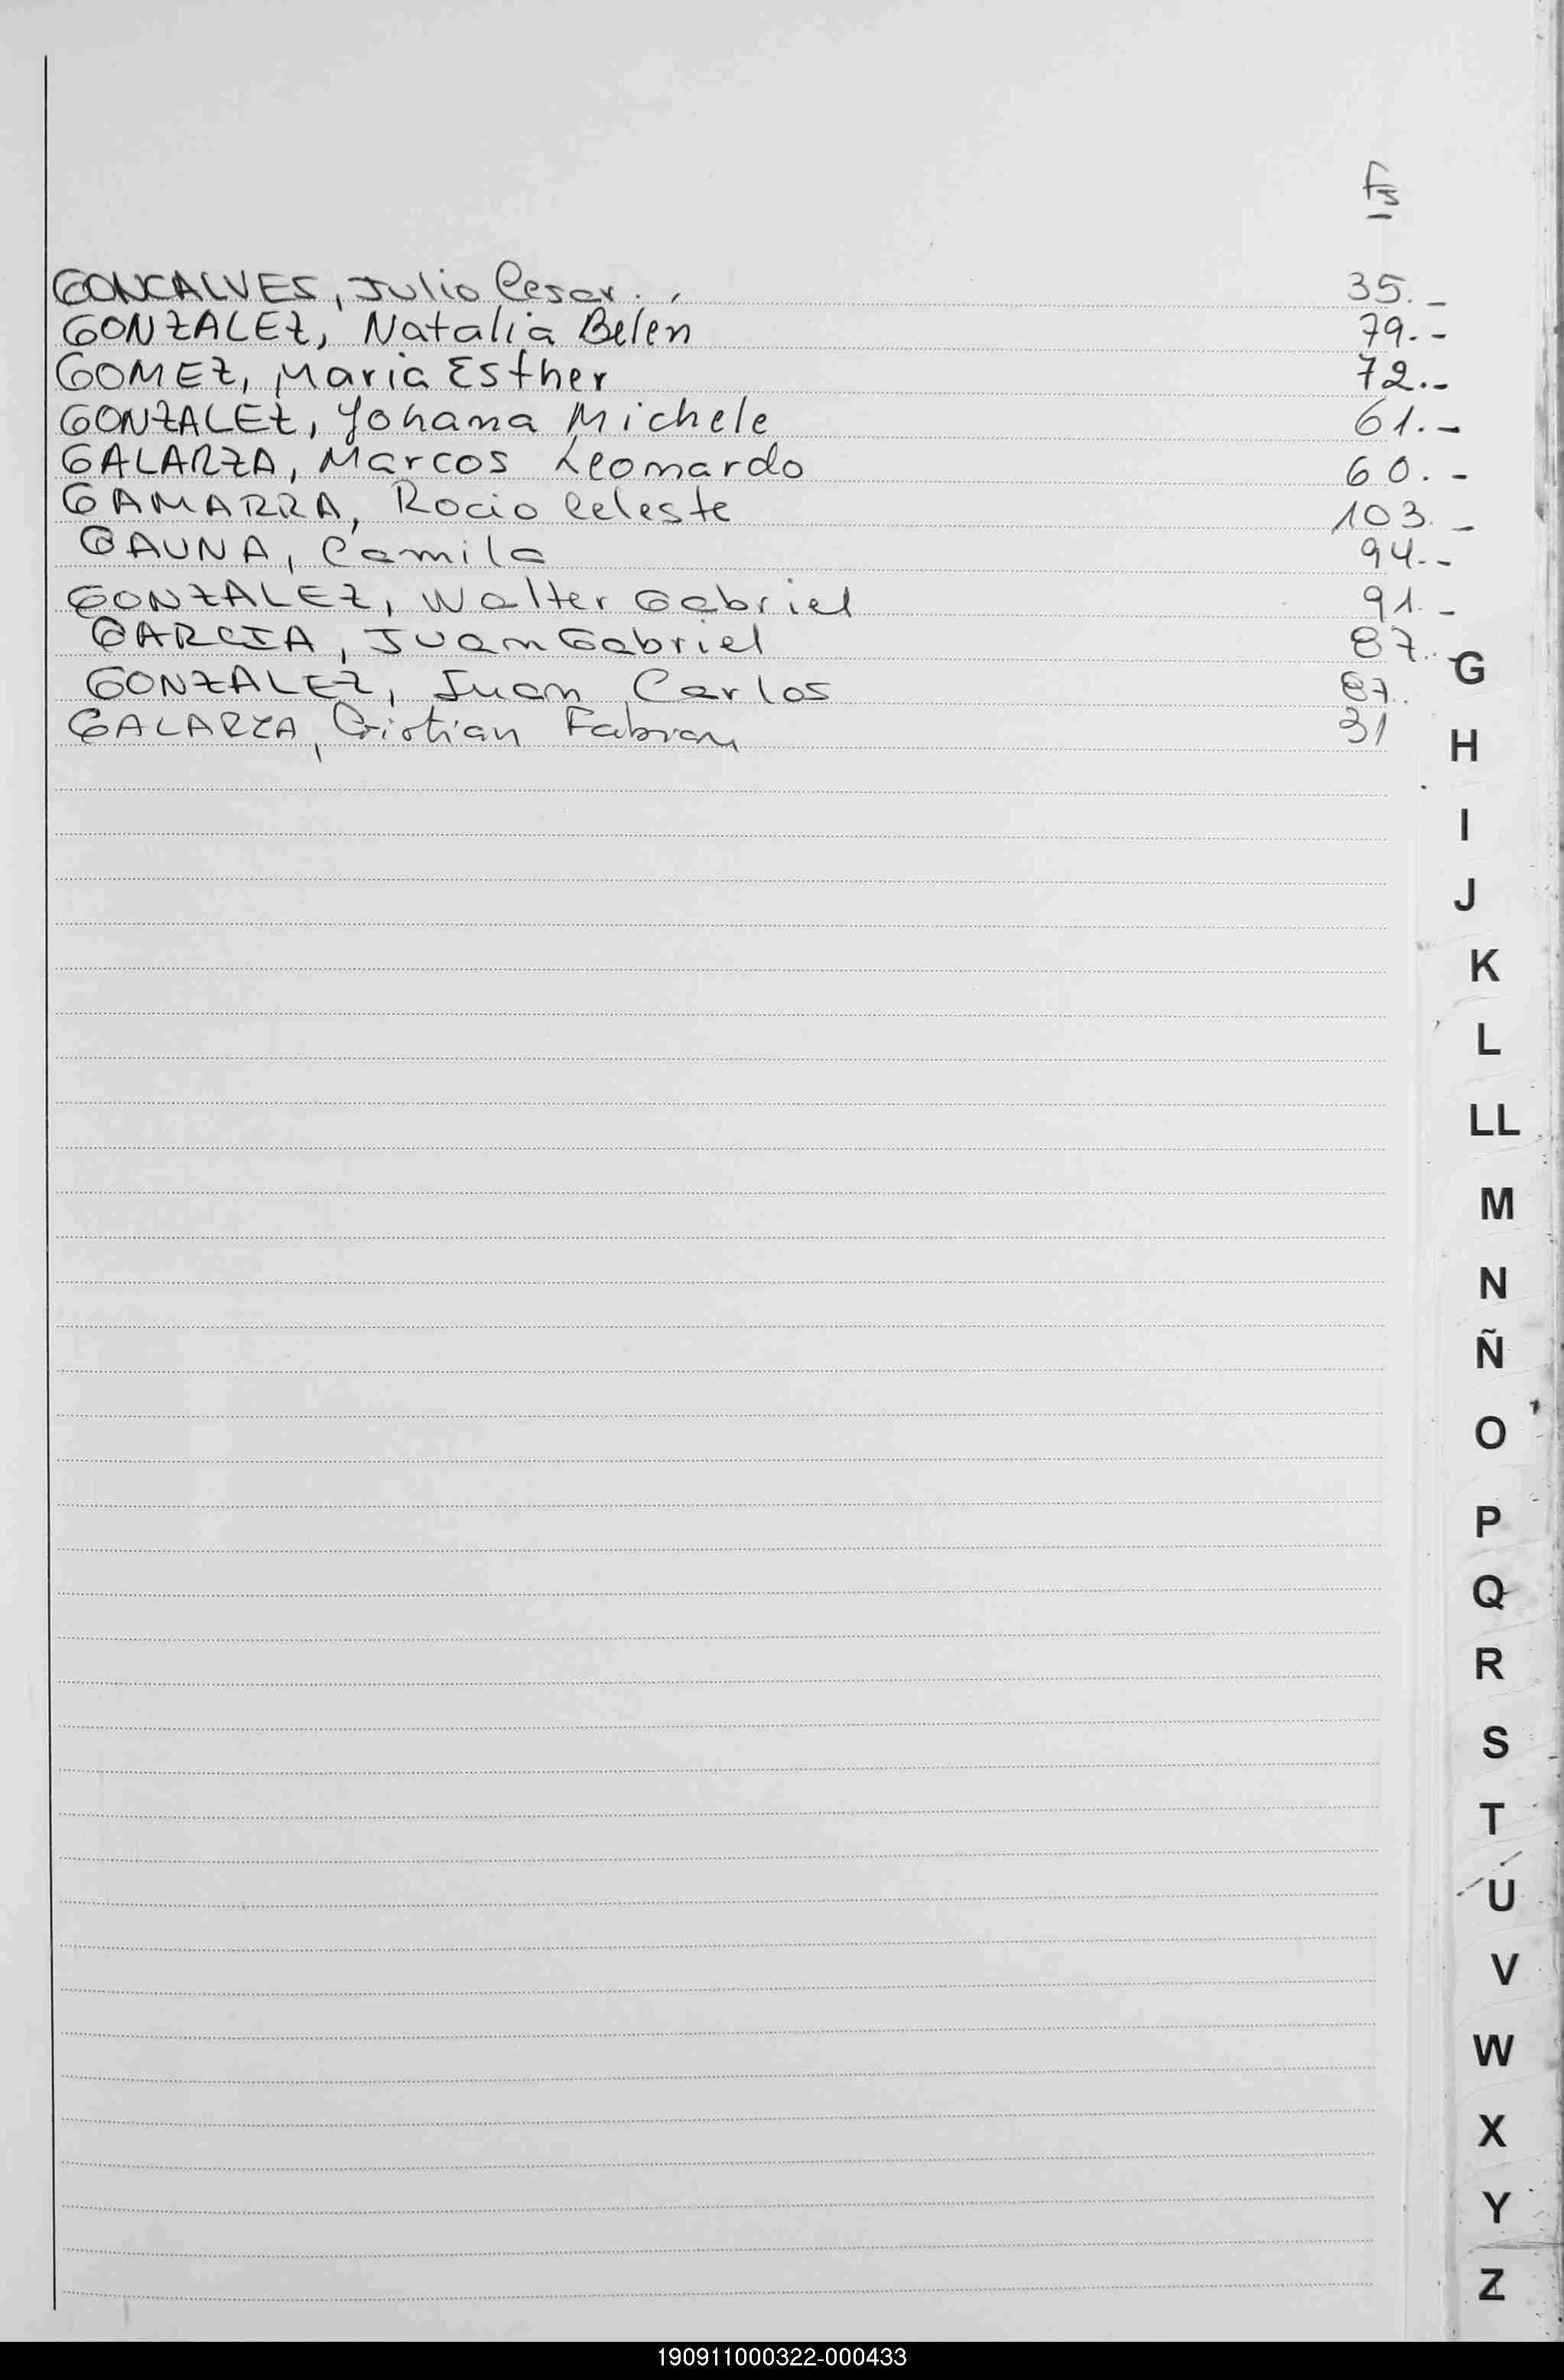 Fs
GONCALVES, Julio Cesar. 35.-
GONZALEZ, Natalia Belén 79.-
GOMEZ, Maria Esther 72.-
GONZALEZ, Yohana Michele 61.-
GALARZA, Marcos Leonardo 60.-
GAMARRA, Rocio Celeste 103.-
GAUNA, Camila 94.-
GONZALEZ, Walter Gabriel 91.-
GARCIA, Juan Gabriel 87.-
GONZALEZ, Juan Carlos 87.
GALARZA, Cristian Fabian 31
G
H
I
J
K
L
LL
M
N
Ñ
O
P
Q
R
S
T
U
V
W
X
Y
Z
190911000322-000433